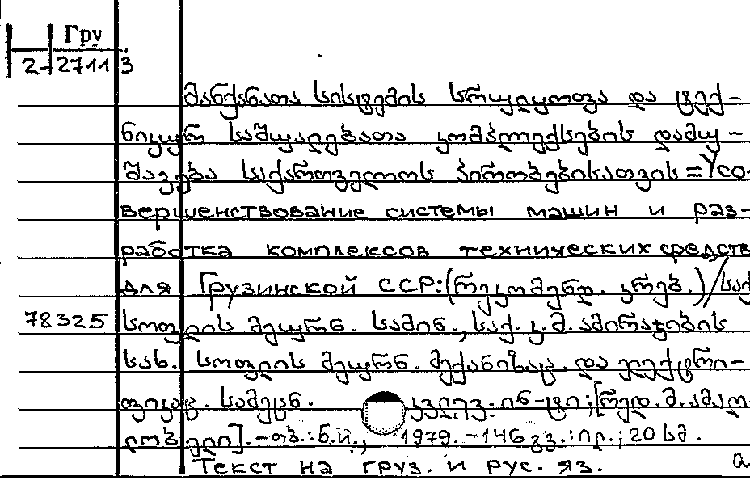 Гру
2-27113
მანქანათა სისტემის სრულყოფა და ტექ-
ნიკურ საშუალებათა კომპლექსების დამუ-
შავება საქართველოს პირობებისათვის = Усо-
вершенствование системы машин и раз-
работка комплексов технических средств
для Грузинской ССР: (რეკომენდ. კრებ.)/საქ
78325 სოფლის მეურნ. სამინ., საქ. კ. მ. ამირაჯიბის
სახ. სოფლის მეურნ. მექანიზაც. და ელექტრი-
ფიკაც. სამეცნ. კვლევ. ინ-ტი; [რედ. შ. ამალ
ლობელი]. - თბ.: ბ.ი., 1979. - 146 გვ.: ილ.; 20 სმ.
Текст на груз. и рус. яз.
а